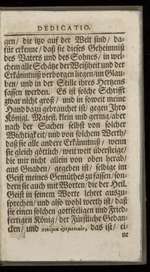 DEDICATIO.
gen/ die itzo auf der Welt sind/ da-
für erkenne/ daß sie dieses Geheimniß
des Vaters und des Sohnes/ in wel-
chen alle Schätze der Weißheit und der
Erkänntniß verborgen liegen/ im Glau-
ben/ und in der Stille ihres Hertzens
fassen werden. Es ist solche Schrifft
zwar nicht groß/ und in soweit meine
Hand dazu gebrauchet ist/ gegen Ihro
Königl. Majest. klein und gering/ aber
nach der Sachen selbst von solcher
Wichtigkeit/ und von solchem Werth/
daß sie alle andere Erkänntniß/ wenn
sie gleich göttlich/ weit weit überstieget/
die mir nicht allein von oben herab
aus Gnaden/ gegeben ist/ selbige im
Geist meines Gemüthes zu fassen/ son-
dern sie auch mit Worten/ die der Heil.
Geist in seinem Worte lehret auszu-
sprechen/ und also wohl werth ist/ daß
sie einen solchen gottseeligen und Fried-
fertigen König/ der Fürstliche Gedan-
cken/ und das ist/ ei-
ne